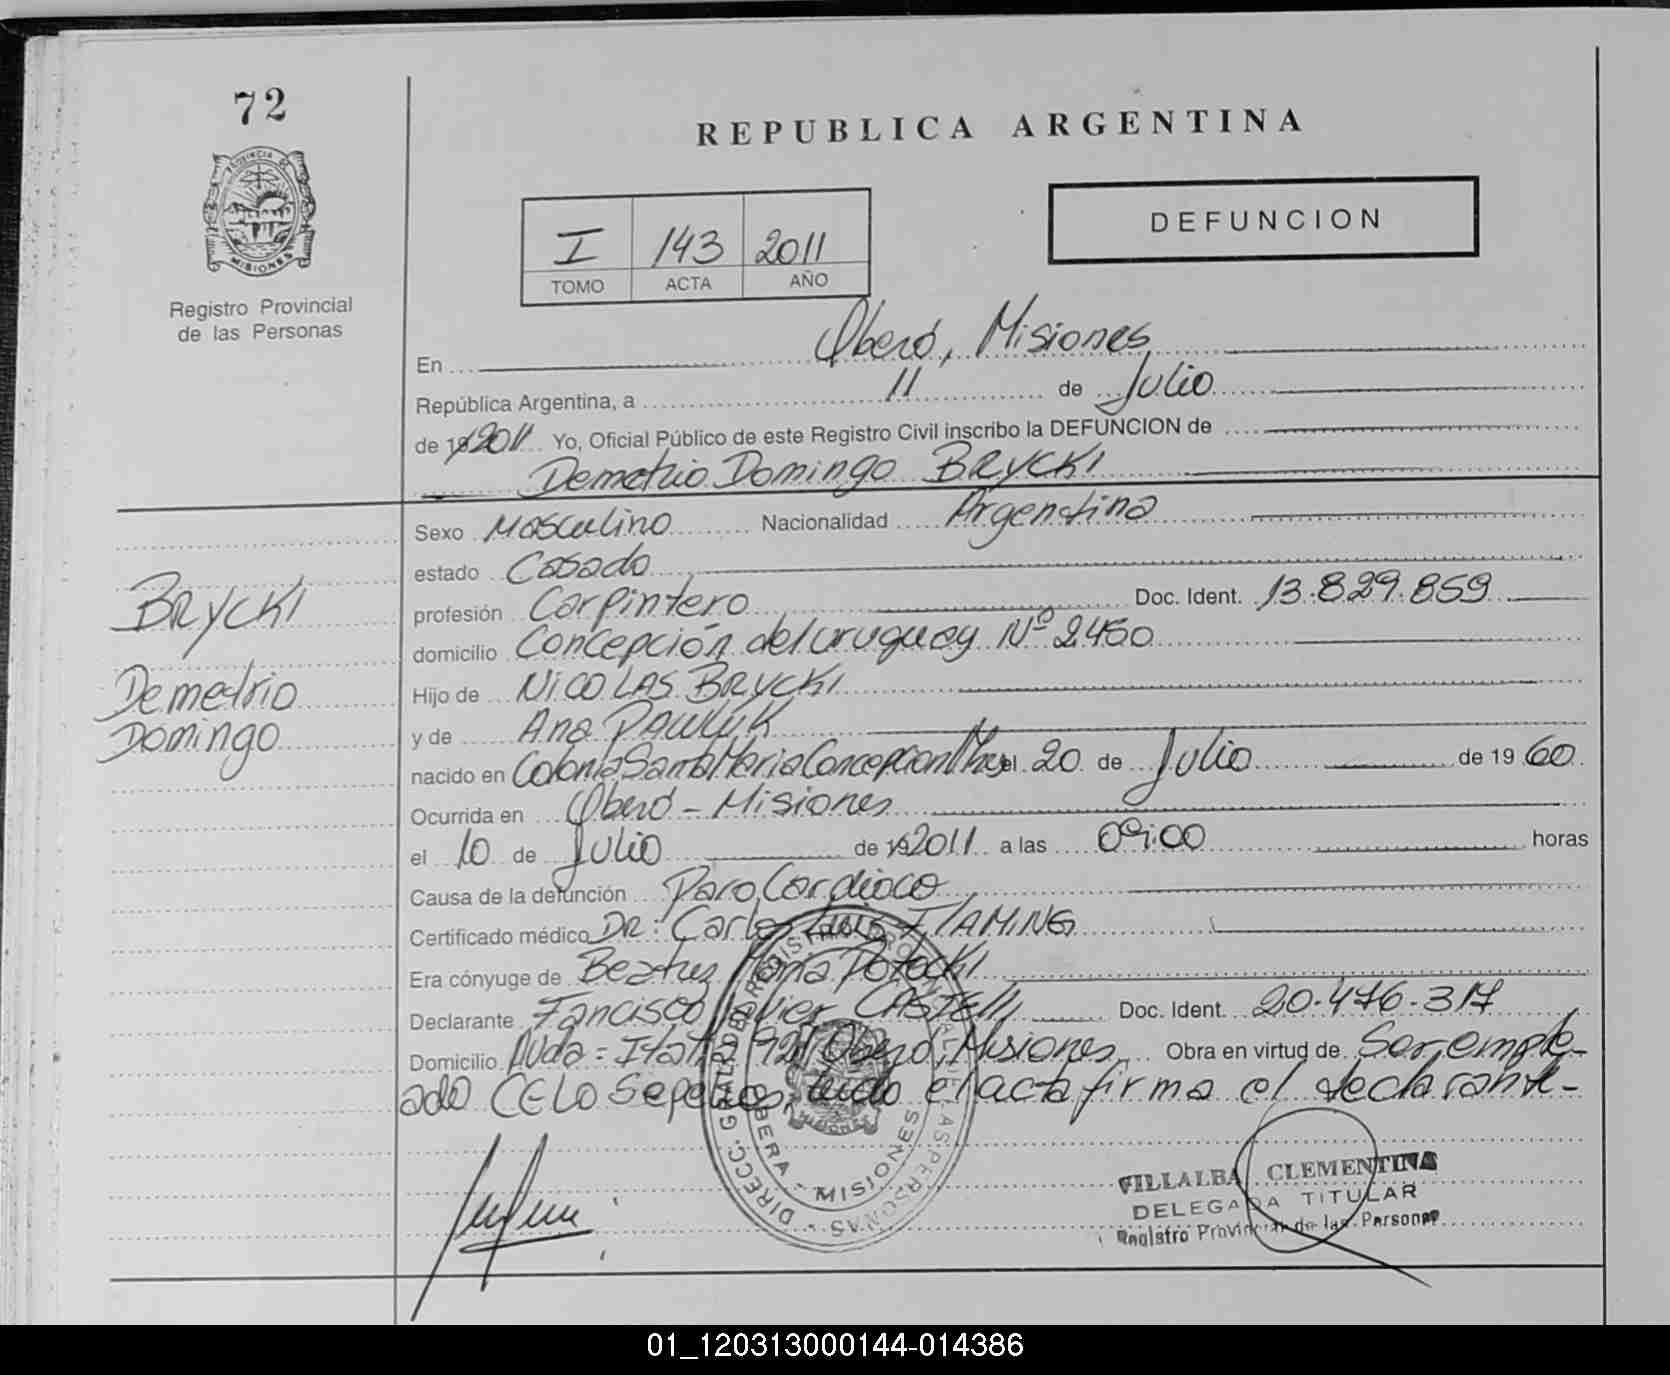 72
REPUBLICA ARGENTINA
PROVINCIA DE
MISIONES
Registro Provincial
de las Personas
I 143 2011
TOMO ACTA AÑO
DEFUNCION
En Oberá, Misiones
República Argentina, a 11 de Julio
de 19 2011 Yo, Oficial Público de este Registro Civil inscribo la DEFUNCION de
Demetrio Domingo BRYCKI
Sexo Masculino Nacionalidad Argentina
estado Casado
profesión Carpintero Doc. Ident. 13.829.859
domicilio Concepción del uruguay Nº 2450
Hijo de NICOLAS BRYCKI
y de Ana PAWLUK
nacido en Colonia Santa Maria Concepcion el 20 de Julio de 1960
Ocurrida en Oberá - Misiones
el 10 de Julio de 19 2011 a las 09:00 horas
Causa de la defunción Paro Cardiaco
Certificado médico DR: Carlos Luis FLAMING
Era cónyuge de Beatriz Maria Potocki
Declarante Fancisco Javier CASTELLI Doc. Ident. 20.476.317
Domicilio Avda = Oberá, Misiones Obra en virtud de Ser emple-
ado CELO Sepelios, leido el acta firma el declarante-
BRYCKI
Demetrio
Domingo
DIRECC. GRAL. DEL REGISTRO PROVINCIAL DE LAS PERSONAS
OBERA - MISIONES
VILLALBA CLEMENTINA
DELEGADA TITULAR
Registro Provincial de las Personas
01_120313000144-014386